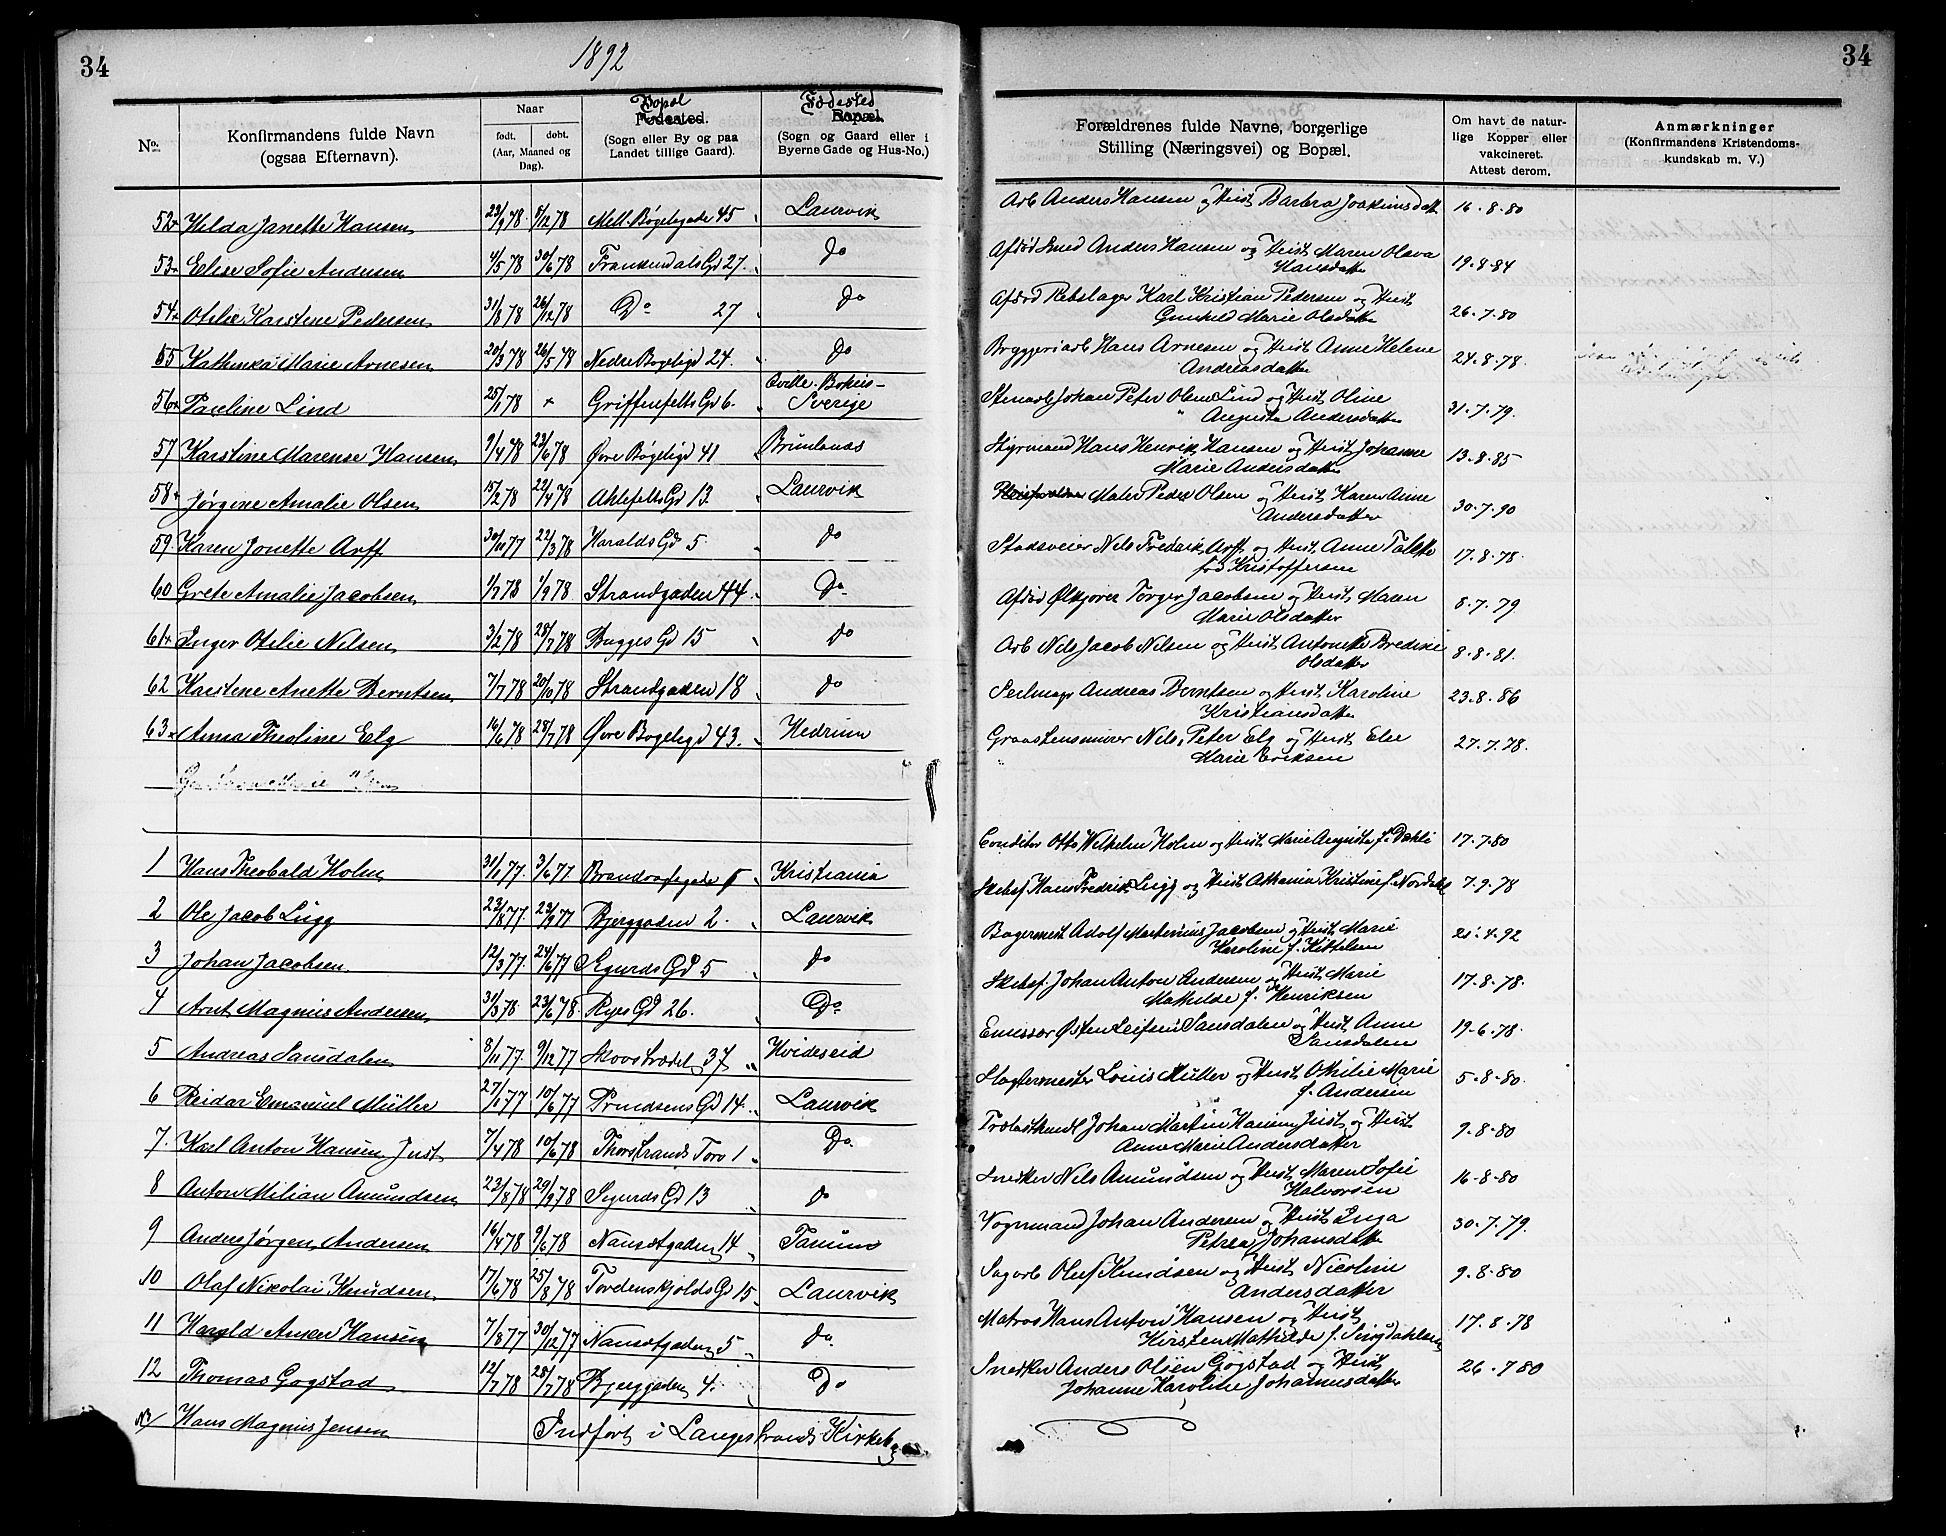 34
1892
34
No.
Konfirmandens fulde Navn
(ogsaa Efternavn).
Naar
født.
døbt.
(Aar, Maaned og
Dag).
Bopæl
Fødested.
(Sogn eller By og paa
Landet tillige Gaard).
Fødested
Bopæl.
(Sogn og Gaard eller i
Byerne Gade og Hus-No.)
Forældrenes fulde Navne, borgerlige
Stilling (Næringsvei) og Bopæl.
Om havt de natur-
lige Kopper eller
vakcineret.
Attest derom.
Anmærkninger
(Konfirmandens Kristendoms-
kundskab m. V.)
52 Hilda Janette Hansen 23/9 78 8/12 78 Mell. Bøgeligade 45 Laurvik Arb Anders Hansen og Hust Barbra Joakimsdatt 16-8-80
53 Elise Sofie Andersen 4/5 78 30/6 78 Frankendals Gd 27. do Afdød Smed Anders Hansen og Hust Maren Olava
Hansdatter 19-8-84
54 Otilie Karstene Pedersen 31/8 78 26/12 78 Do 27 do Afdød Rebslager Karl Kristian Pedersen og Hust
Gunhild Marie Olsdatter 26.7.80
55 Kathinka Marie Arnesen 20/3 78 26/5 78 Nedre Bøgeligd 24. do Bryggeriarb Hans Arnesen og Hust Anne Helene
Andreasdatter 24-8-78.
56 Pauline Lind 25/1 78 + Griffenfelts Gd 6. Qville. Bohus-
Sverige Stenarb Johan Peter Olsen Lind og Hust Oline
Augusta Andersdatter 31.7.79.
57 Karstine Marense Hansen 9/4 78 23/6 78 Øvre Bøgeligd 41 Brunlanæs Styrmand Hans Henrik Hansen og Hust Johanne
Marie Andersdatter 13-8-85
58 Jørgine Amalie Olsen 15/2 78 22/4 78 Ahlefelts Gd 13. Laurvik Maler Peder Olsen og Hust Karen Anne
Andersdatter 30-7.90
59. Karen Jonette Arff 30/11 77 22/3 78 Haralds Gd 5. do Stadsveier Nils Fredrik Arff og Hust Anne Talette
fød Kristoffersen 17-8-78.
60 Grete Amalie Jacobsen 1/7 78 1/9 78 Strandgaden 44. Do. Afdød Ølkjører Torger Jacobsen og Hust Maren
Marie Olsdatter 8-7.79
61 Inger Otilie Nilsen 3/2 78 28/7 78 Bugges Gd 15 do Arb Nils Jacob Nilsen og Hust Antonette Bredine
Olsdatter 8-8-81.
62 Karstene Anette Berntsen 7/7 78 20/10 78 Strandgaden 18 do Seilmagr Andreas Berntsen og Hust Karoline
Kristiansdatter 23.8.86
63 Anna Theoline Elg 16/6 78 28/7 78 Øvre Bøgeligd 43. Hedrum Graastensmurer Nils Peter Elg og Hust Else
Marie Eriksen 27.7.78.
1 Hans Theobald Holm 31/1 77. 3/6 77 Kristiania Conditor Otto Wilhelm Holm og Hust Marie Augusta f. Dahli 17-7-80
2 Ole Jacob Lugg 23/8 77. 23/9 77 Bjerggaden 2. Laurvik Skibsf Hans Fredrik Lugg og Hust Athania Kristine f. Nordahl 7-9-78
3 Johan Jacobsen. 12/3 77. 24/6 77 Sigurds Gd 5 do Bagermest Adolf Martinius Jacobsen og Hust Marie
Karoline f. Kittelsen 21.4.92
4 Arnt Magnus Andersen 31/3 78 23/6 78. Ryes Gd 26. Do. Skibsf. Johan Anton Andersen og Hust Marie
Mathilde f. Henriksen 17-8-78.
5 Andreas Sansdalen 8/11 77. 9/12 77 Skovstrædet 37 Hvideseid Emissær Østen Leifsen Sansdalen og Hust Anne
Sansdalen 19-6-78.
6 Reidar Emanuel Müller 27/1 77 10/6 77 Prindsens Gd 14. Laurvik Slagtermester Louis Müller og Hust Othilie Marie
f. Andersen 5-8-80.
7. Karl Anton Hansen Just 7/4 78 10/6 78 Thorstrands Torv 1 Do. Trælasthandl Johan Martin Hansen Just og Hust
Anne Marie Andersdatter 9-8-80
8 Anton Milian Amundsen 23/8 78 29/9 78 Sigurds Gd 13 do Snedker Nils Amundsen og Hust Maren Sofie
Halvorsen 16-8-80
9 Anders Jørgen Andersen 16/4 78 9/6 78 Nansetgaden 14 Tanum Vognmand Johan Andersen og Hust Inga
Petrea Johansdatt 30-7.79.
10 Olaf Nikolai Knudsen 17/6 78 25/8 78 Tordenskjolds Gd 15 Laurvik Sagarb Oluf Knudsen og Hust Nicoline
Andersdatter 9.8.80
11 Harald Anker Hansen 7/8 77 30/12 77 Nansetgaden 5 do. Matros Hans Anton Hansen og Hust
Kirsten Mathilde f. Sinsdahlen 17.8-78
12 Thomas Gogstad 12/7 78 28/7 78 Bjerggaden 4. Do Snedker Anders Olsen Gogstad og Hust
Johanne Karoline Johannesdatter 26-7 80
Hans Magnus Jensen Indført i Langestrands Kirkebog